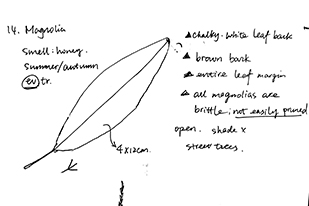 14. Magnolia
smell: honey.
summer/autumn
ev tr.
4x12cm.
▲ chalky-white leaf back
▲ brown bark
▲ entire leaf margin
▲ all magnolias are
brittle: not easily pruned
open. shade x
street trees.